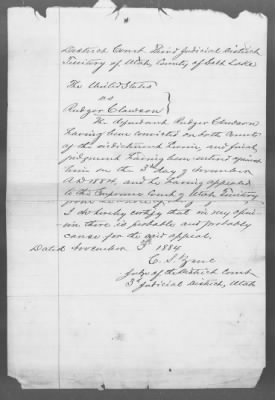 District Court Third Judicial District
Territory of Utah, County of Salt Lake
The United States
vs
Rudger Clawson
The defendant Rudger Clawson
having been convicted on both Counts
of the indictment herein, and final
judgment having been entered against
him on the 3rd day of November
A.D. 1884, and he having appealed
to the Supreme Court of Utah Territory
from
I do hereby certify that in my opin-
ion there is probable and probably
cause for the said appeal.
Dated November 3rd 1884
C. S. Zane
Judge of the District Court
3d Judicial District, Utah